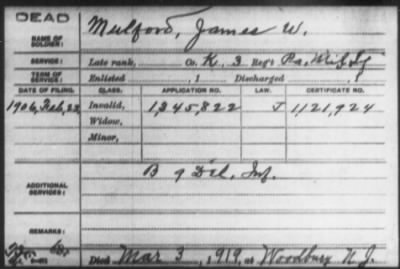 DEAD
NAME OF SOLDIER: Mulford, James W.
SERVICE: Late rank, Co. K, 3 Reg't Pa.
TERM OF SERVICE: Enlisted , 1 Discharged , 1
DATE OF FILING. CLASS. APPLICATION NO. LAW. CERTIFICATE NO.
1906, Feb, 23 Invalid, 1,345,822 J 1,121,924
Widow,
Minor,
ADDITIONAL SERVICES: B 9 Del. Inf.
REMARKS:
Died Mar 3, 1919, at Woodbury N. J.